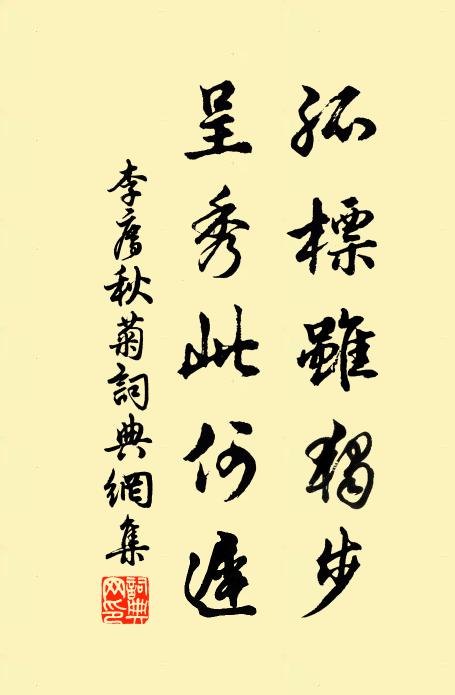 孤標雖獨步
呈秀此何遲
李秋菊詞典網集
詞典网印